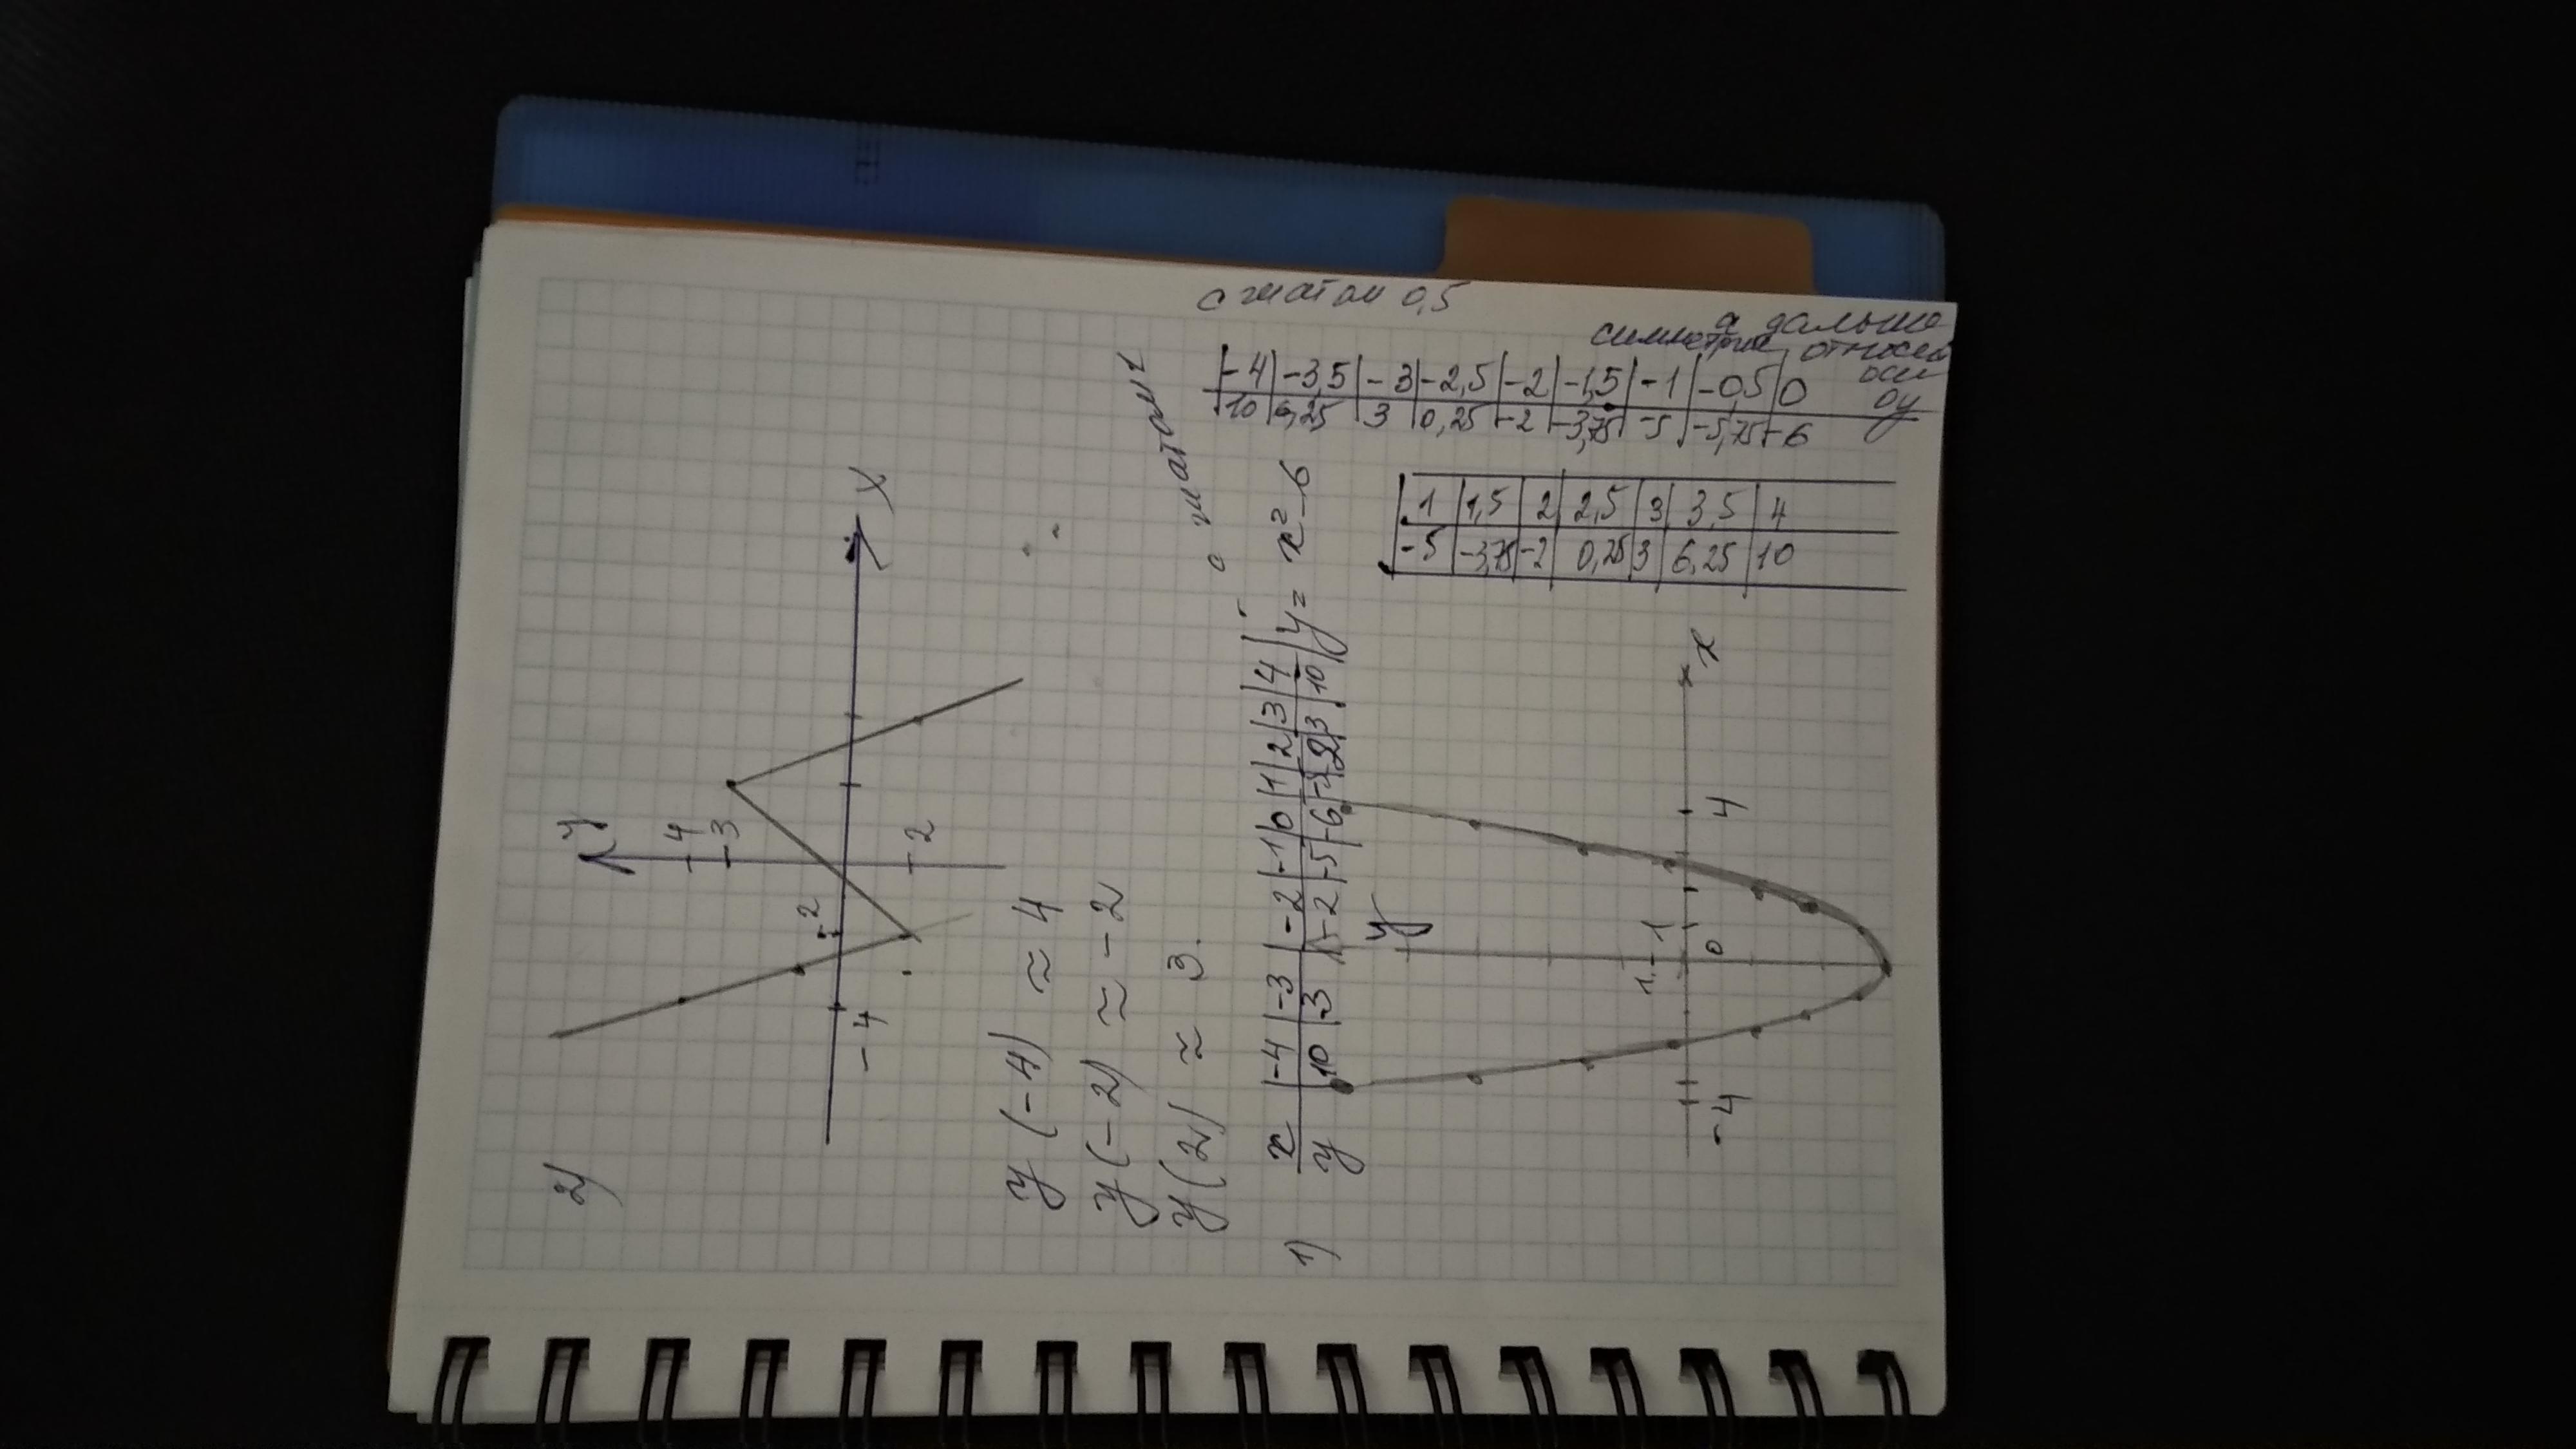 2)
y
4
3
-2
-4
2
X
y(-4) ≈ 4
y(-2) ≈ -2
y(2) ≈ 3.
с шагом 1
1)
x | -4 | -3 | -2 | -1 | 0 | 1 | 2 | 3 | 4 | y = x² - 6
y | 10 | 3 | -2 | -5 | -6 | -5 | -2 | 3 | 10
с шагом 0,5
-4 | -3,5 | -3 | -2,5 | -2 | -1,5 | -1 | -0,5 | 0
10 | 6,25 | 3 | 0,25 | -2 | -3,75 | -5 | -5,75 | -6
а дальше
симметрия относ
оси
Oy
1 | 1,5 | 2 | 2,5 | 3 | 3,5 | 4
-5 | -3,75 | -2 | 0,25 | 3 | 6,25 | 10
y
1
-4
0
1
4
x